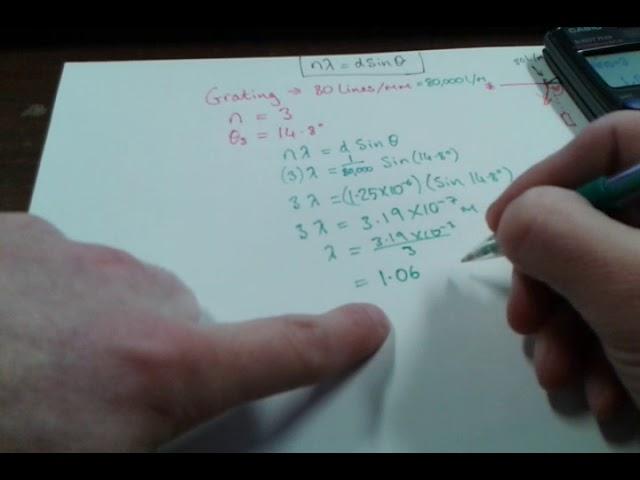 nλ = d Sin θ
Grating → 80 Lines/mm = 80,000 l/m
n = 3
θ₃ = 14.8°
nλ = d Sin θ
(3) λ = 1/80,000 Sin (14.8°)
3 λ = (1.25×10⁻⁶) (Sin 14.8°)
3 λ = 3.19 × 10⁻⁷ m
λ = 3.19 × 10⁻⁷/3
= 1.06